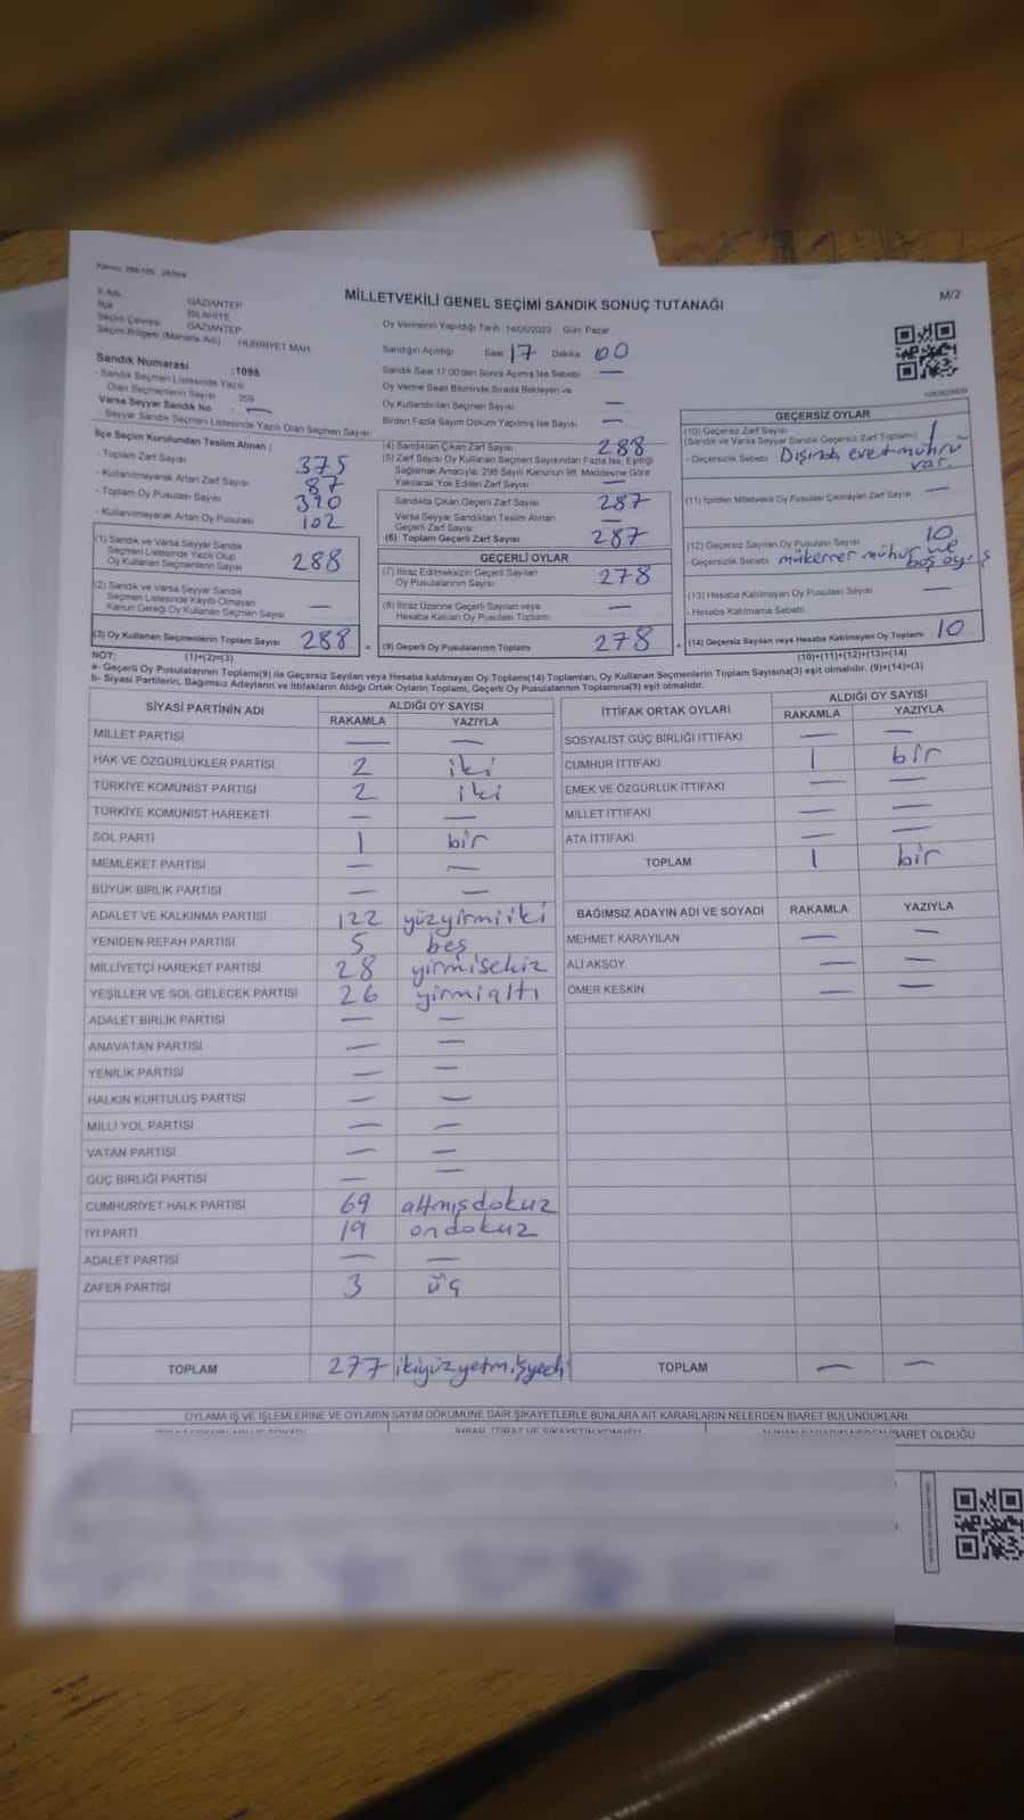 MİLLETVEKİLİ GENEL SEÇİMİ SANDIK SONUÇ TUTANAĞI
M/2
GAZİANTEP
İSLAHİYE
GAZİANTEP
HÜRRİYET MAH.
Oy Vermenin Yapıldığı Tarih: 14/05/2023 Gün: Pazar
Sandığın Açıldığı Saat 17 Dakika 00
Sandık Saat 17:00'den Sonra Açılmış İse Sebebi —
Oy Verme Saati Bitiminde Sırada Bekleyen ve
Oy Kullandırılan Seçmen Sayısı —
Birden Fazla Sayım Döküm Yapılmış İse Sayısı —
Sandık Numarası :1098
- Sandık Seçmen Listesinde Yazılı
Olan Seçmenlerin Sayısı 359
Varsa Seyyar Sandık No : —
- Seyyar Sandık Seçmen Listesinde Yazılı Olan Seçmen Sayısı
İlçe Seçim Kurulundan Teslim Alınan :
- Toplam Zarf Sayısı 375
- Kullanılmayarak Artan Zarf Sayısı 87
- Toplam Oy Pusulası Sayısı 390
- Kullanılmayarak Artan Oy Pusulası 102
(1) Sandık ve Varsa Seyyar Sandık
Seçmen Listesinde Yazılı Olup
Oy Kullanan Seçmenlerin Sayısı 288
(2) Sandık ve Varsa Seyyar Sandık
Seçmen Listesinde Kayıtlı Olmayan
Kanun Gereği Oy Kullanan Seçmen Sayısı —
(3) Oy Kullanan Seçmenlerin Toplam Sayısı 288
(1)+(2)=(3)
(4) Sandıktan Çıkan Zarf Sayısı 288
(5) Zarf Sayısı Oy Kullanan Seçmen Sayısından Fazla İse, Eşitliği
Sağlamak Amacıyla, 298 Sayılı Kanunun 98. Maddesine Göre
Yakılarak Yok Edilen Zarf Sayısı —
Sandıkta Çıkan Geçerli Zarf Sayısı 287
Varsa Seyyar Sandıktan Teslim Alınan
Geçerli Zarf Sayısı —
(6) Toplam Geçerli Zarf Sayısı 287
GEÇERLİ OYLAR
(7) İtiraz Edilmeksizin Geçerli Sayılan
Oy Pusulalarının Sayısı 278
(8) İtiraz Üzerine Geçerli Sayılan veya
Hesaba Katılan Oy Pusulası Toplamı —
(9) Geçerli Oy Pusulalarının Toplamı 278
GEÇERSİZ OYLAR
(10) Geçersiz Zarf Sayısı
(Sandık ve Varsa Seyyar Sandık Geçersiz Zarf Toplamı) 1
- Geçersizlik Sebebi Dışında evet mührü
var.
(11) İçinden Milletvekili Oy Pusulası Çıkmayan Zarf Sayısı —
(12) Geçersiz Sayılan Oy Pusulası Sayısı 10
- Geçersizlik Sebebi mükerrer mühür ve
boş oy
(13) Hesaba Katılmayan Oy Pusulası Sayısı —
- Hesaba Katılmama Sebebi
(14) Geçersiz Sayılan veya Hesaba Katılmayan Oy Toplamı 10
(10)+(11)+(12)+(13)=(14)
NOT:
a- Geçerli Oy Pusulalarının Toplamı(9) ile Geçersiz Sayılan veya Hesaba katılmayan Oy Toplamı(14) Toplamları, Oy Kullanan Seçmenlerin Toplam Sayısına(3) eşit olmalıdır. (9)+(14)=(3)
b- Siyasi Partilerin, Bağımsız Adayların ve İttifakların Aldığı Ortak Oyların Toplamı, Geçerli Oy Pusulalarının Toplamına(9) eşit olmalıdır.
SİYASİ PARTİNİN ADI ALDIĞI OY SAYISI
RAKAMLA YAZIYLA
MİLLET PARTİSİ — —
HAK VE ÖZGÜRLÜKLER PARTİSİ 2 iki
TÜRKİYE KOMÜNİST PARTİSİ 2 iki
TÜRKİYE KOMÜNİST HAREKETİ — —
SOL PARTİ 1 bir
MEMLEKET PARTİSİ — —
BÜYÜK BİRLİK PARTİSİ — —
ADALET VE KALKINMA PARTİSİ 122 yüzyirmiiki
YENİDEN REFAH PARTİSİ 5 beş
MİLLİYETÇİ HAREKET PARTİSİ 28 yirmisekiz
YEŞİLLER VE SOL GELECEK PARTİSİ 26 yirmialtı
ADALET BİRLİK PARTİSİ — —
ANAVATAN PARTİSİ — —
YENİLİK PARTİSİ — —
HALKIN KURTULUŞ PARTİSİ — —
MİLLİ YOL PARTİSİ — —
VATAN PARTİSİ — —
GÜÇ BİRLİĞİ PARTİSİ — —
CUMHURİYET HALK PARTİSİ 69 altmışdokuz
İYİ PARTİ 19 ondokuz
ADALET PARTİSİ — —
ZAFER PARTİSİ 3 üç
TOPLAM 277 ikiyüzyetmişyedi
İTTİFAK ORTAK OYLARI ALDIĞI OY SAYISI
RAKAMLA YAZIYLA
SOSYALİST GÜÇ BİRLİĞİ İTTİFAKI — —
CUMHUR İTTİFAKI 1 bir
EMEK VE ÖZGÜRLÜK İTTİFAKI — —
MİLLET İTTİFAKI — —
ATA İTTİFAKI — —
TOPLAM 1 bir
BAĞIMSIZ ADAYIN ADI VE SOYADI RAKAMLA YAZIYLA
MEHMET KARAYILAN — —
ALİ AKSOY — —
ÖMER KESKİN — —
TOPLAM — —
OYLAMA İŞ VE İŞLEMLERİNE VE OYLARIN SAYIM DÖKÜMÜNE DAİR ŞİKAYETLERLE BUNLARA AİT KARARLARIN NELERDEN İBARET BULUNDUKLARI
İBARET OLDUĞU